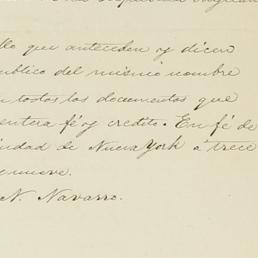 llo que anteceden y dicen
ublico del mismo nombre
n todos los documentos que
entera fé y credito. En fé de
iudad de Nueva York a trece
nueve.
N. Navarro.